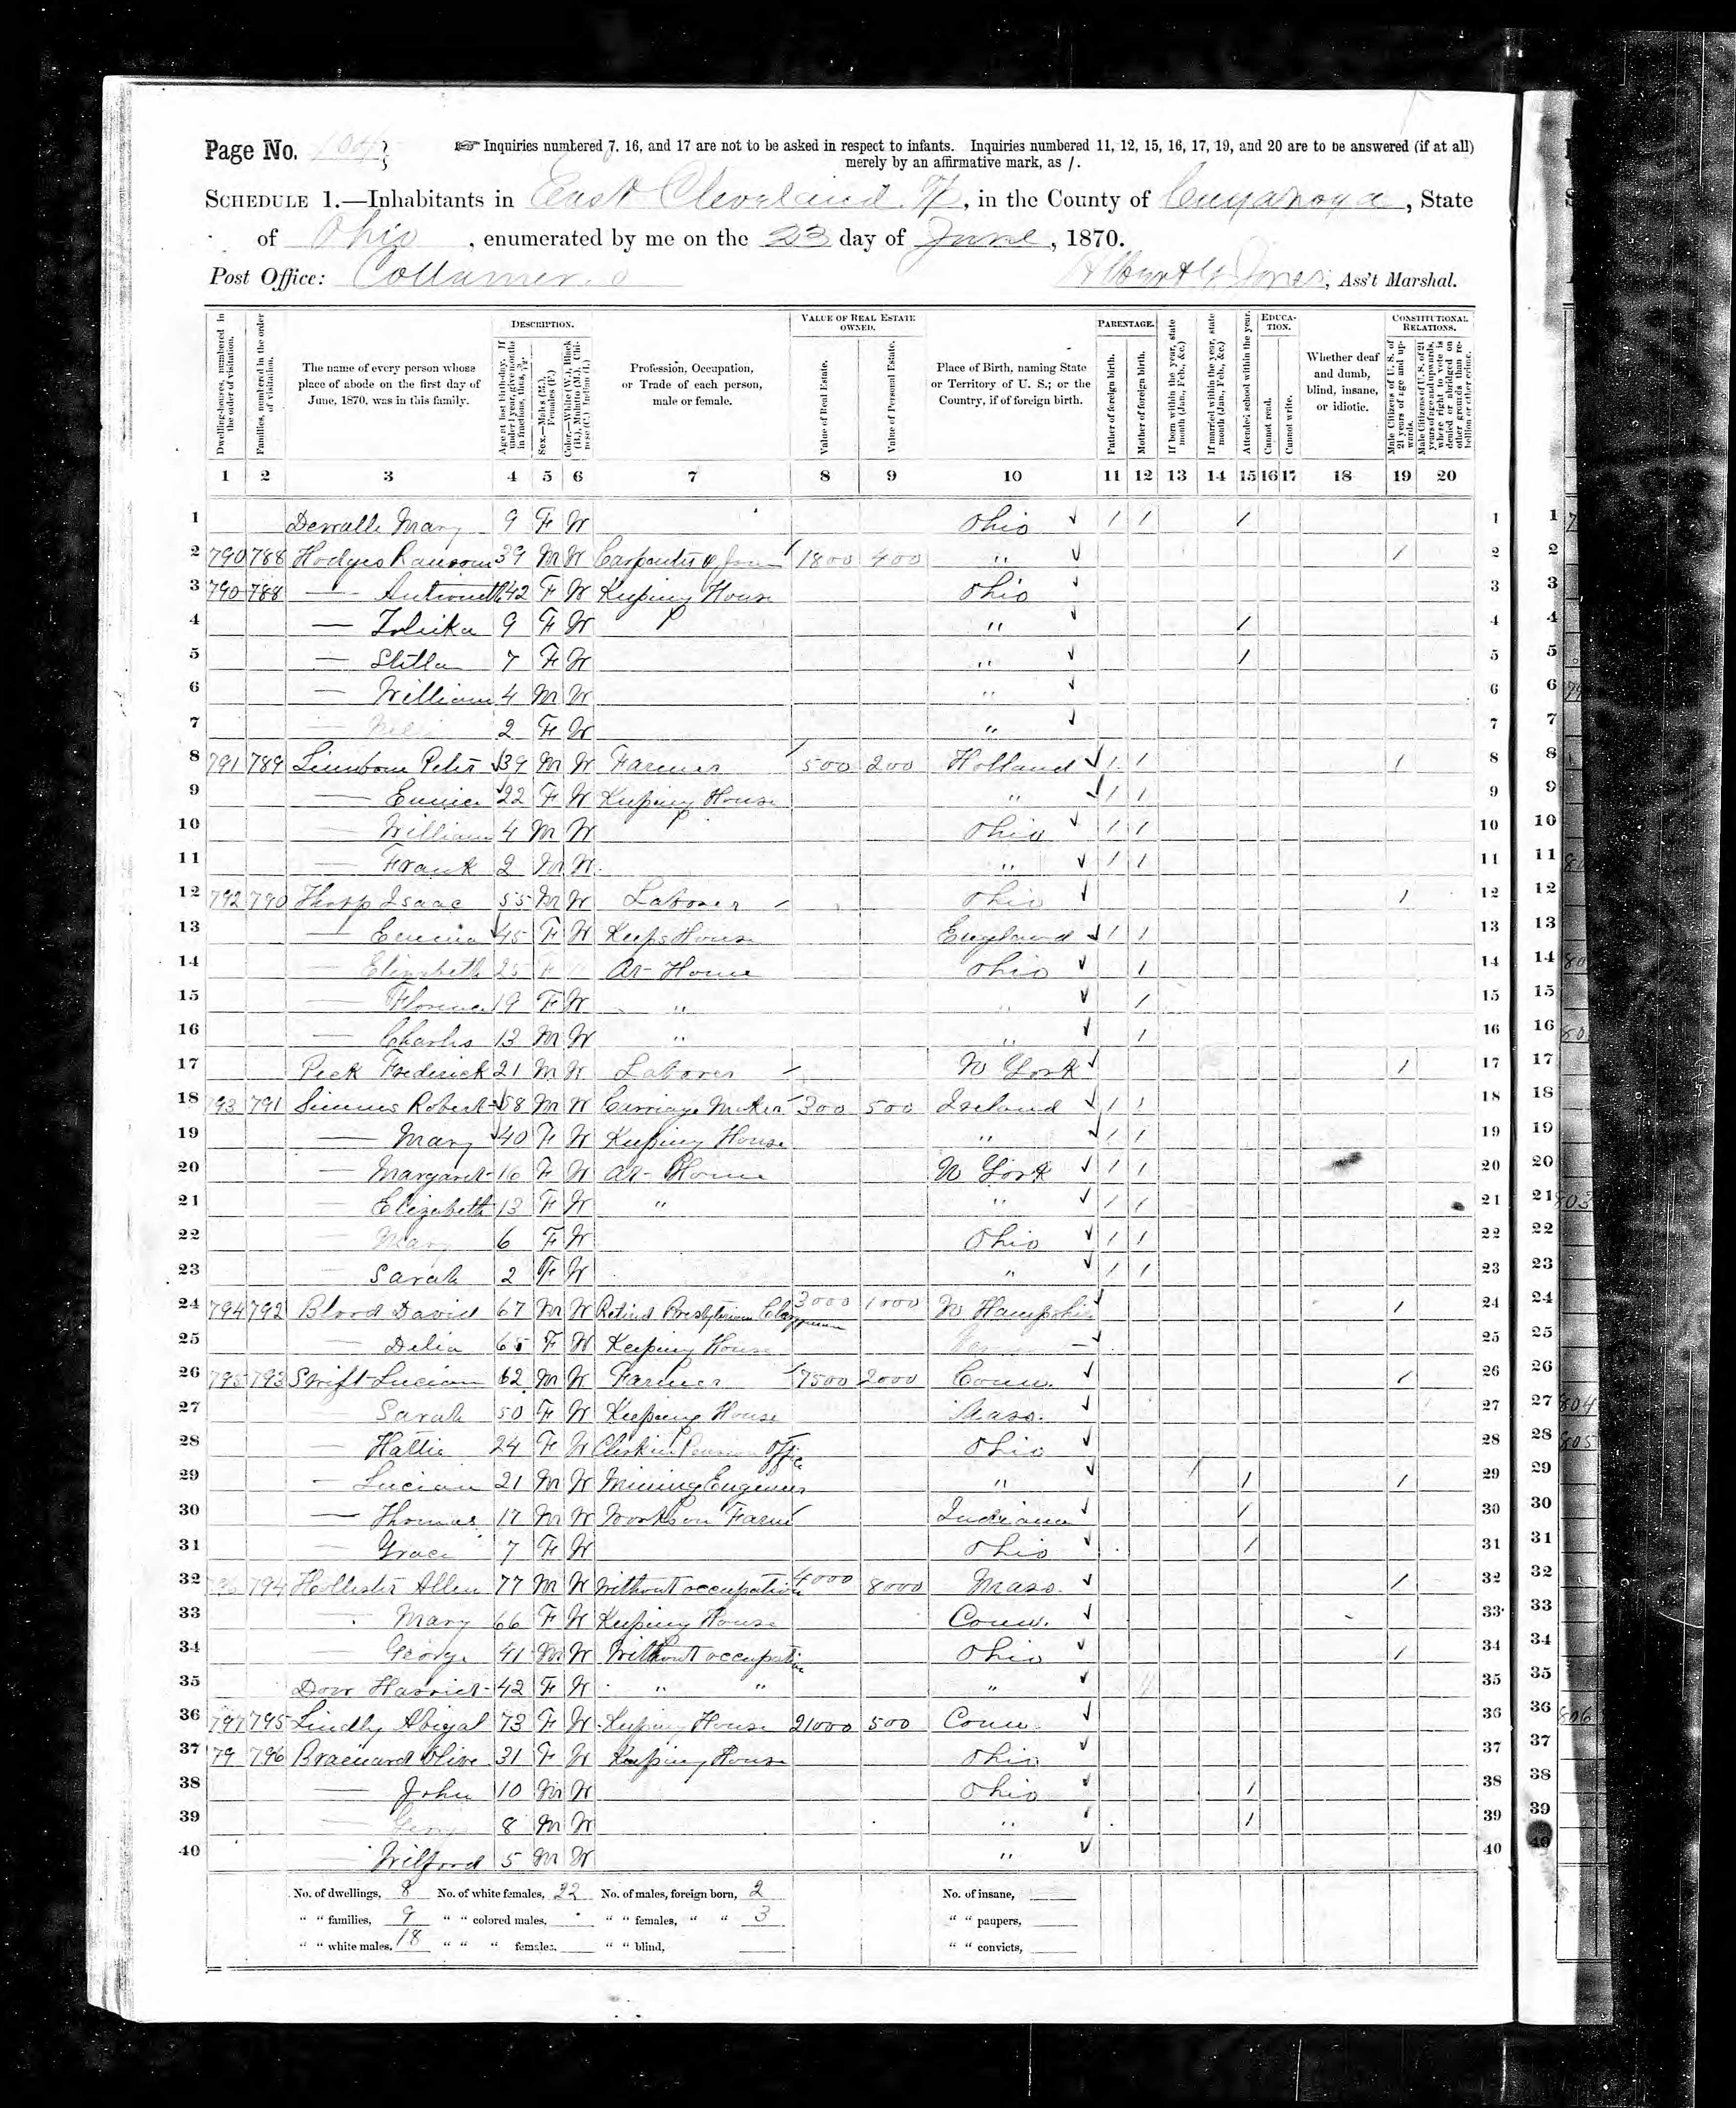 Page No.
☞ Inquiries numbered 7, 16, and 17 are not to be asked in respect to infants. Inquiries numbered 11, 12, 15, 16, 17, 19, and 20 are to be answered (if at all)
merely by an affirmative mark, as /.
SCHEDULE 1.—Inhabitants in East Cleveland Tp, in the County of Cuyahoga, State
of Ohio, enumerated by me on the 23 day of June, 1870.
Post Office: Collamer. O
Jones, Ass't Marshal.
DESCRIPTION. VALUE OF REAL ESTATE OWNED. PARENTAGE. EDUCATION. CONSTITUTIONAL RELATIONS.
Dwelling-houses, numbered in the order of visitation.
Families, numbered in the order of visitation.
The name of every person whose place of abode on the first day of June, 1870, was in this family.
Age at last birth-day. If under 1 year, give months in fractions, thus, 3/12.
Sex.—Males (M.), Females (F.)
Color.—White (W.), Black (B.), Mulatto (M.), Chinese (C.), Indian (I.)
Profession, Occupation, or Trade of each person, male or female.
Value of Real Estate.
Value of Personal Estate.
Place of Birth, naming State or Territory of U. S.; or the Country, if of foreign birth.
Father of foreign birth.
Mother of foreign birth.
If born within the year, state month (Jan., Feb., &c.)
If married within the year, state month (Jan., Feb., &c.)
Attended school within the year.
Cannot read.
Cannot write.
Whether deaf and dumb, blind, insane, or idiotic.
Male Citizens of U. S. of 21 years of age and upwards.
Male Citizens of U. S. of 21 years of age and upwards, where right to vote is denied or abridged on other grounds than rebellion or other crime.
1 2 3 4 5 6 7 8 9 10 11 12 13 14 15 16 17 18 19 20
1 Mary 9 F W Ohio / / / 1
2 790 788 Hodges Ransom 39 M W Carpenter & 1800 400 " / 2
3 790 788 — 42 F W Keeping House Ohio 3
4 — 9 F W " / 4
5 — Stella 7 F W " / 5
6 — William 4 M W " 6
7 — 2 F W " 7
8 791 789 Peter 39 M W Farmer 500 200 Holland / / / 8
9 — 22 F W Keeping House " / / 9
10 — William 4 M W Ohio / / 10
11 — Frank 2 M W " / / 11
12 792 790 Thorp Isaac 55 M W Laborer Ohio / 12
13 — Emma 45 F W Keeps House England / / 13
14 — Elizabeth 25 F W At Home Ohio / 14
15 — Florence 19 F W " " / 15
16 — Charles 13 M W " " / 16
17 Peck Frederick 21 M W Laborer N York / 17
18 793 791 Simms Robert 58 M W Carriage Maker 300 500 Ireland / / 18
19 — Mary 40 F W Keeping House " / / 19
20 — Margaret 16 F W At Home N York / / 20
21 — Elizabeth 13 F W " " / / 21
22 — Mary 6 F W Ohio / / 22
23 — Sarah 2 F W " / / 23
24 794 792 Blood David 67 M W Retired Presbyterian Clergyman 3000 1000 N Hampshire / 24
25 — Delia 65 F W Keeping House 25
26 795 793 Swift Lucian 62 M W Farmer 7500 2000 Conn. / 26
27 — Sarah 50 F W Keeping House Mass. 27
28 — Hattie 24 F W Clerk in Pension Office Ohio 28
29 — Lucian 21 M W Mining Engineer " / / 29
30 — Thomas 17 M W Works on Farm Indiana / 30
31 — Grace 7 F W Ohio / 31
32 796 794 Hollister Allen 77 M W Without occupation 4000 8000 Mass. / 32
33 — Mary 66 F W Keeping House Conn. 33
34 — George 41 M W Without occupation Ohio / 34
35 Dow Harriet 42 F W " " " 35
36 797 795 Lindly Abigal 73 F W Keeping House 21000 500 Conn. 36
37 79 796 Brainard Olive 31 F W Keeping House Ohio 37
38 — John 10 M W Ohio / 38
39 — George 8 M W " / 39
40 — Wilford 5 M W " 40
No. of dwellings, 8 No. of white females, 22 No. of males, foreign born, 2 No. of insane,
" " families, 9 " " colored males, " " females, " " 3 " " paupers,
" " white males, 18 " " " females, " " blind, " " convicts,